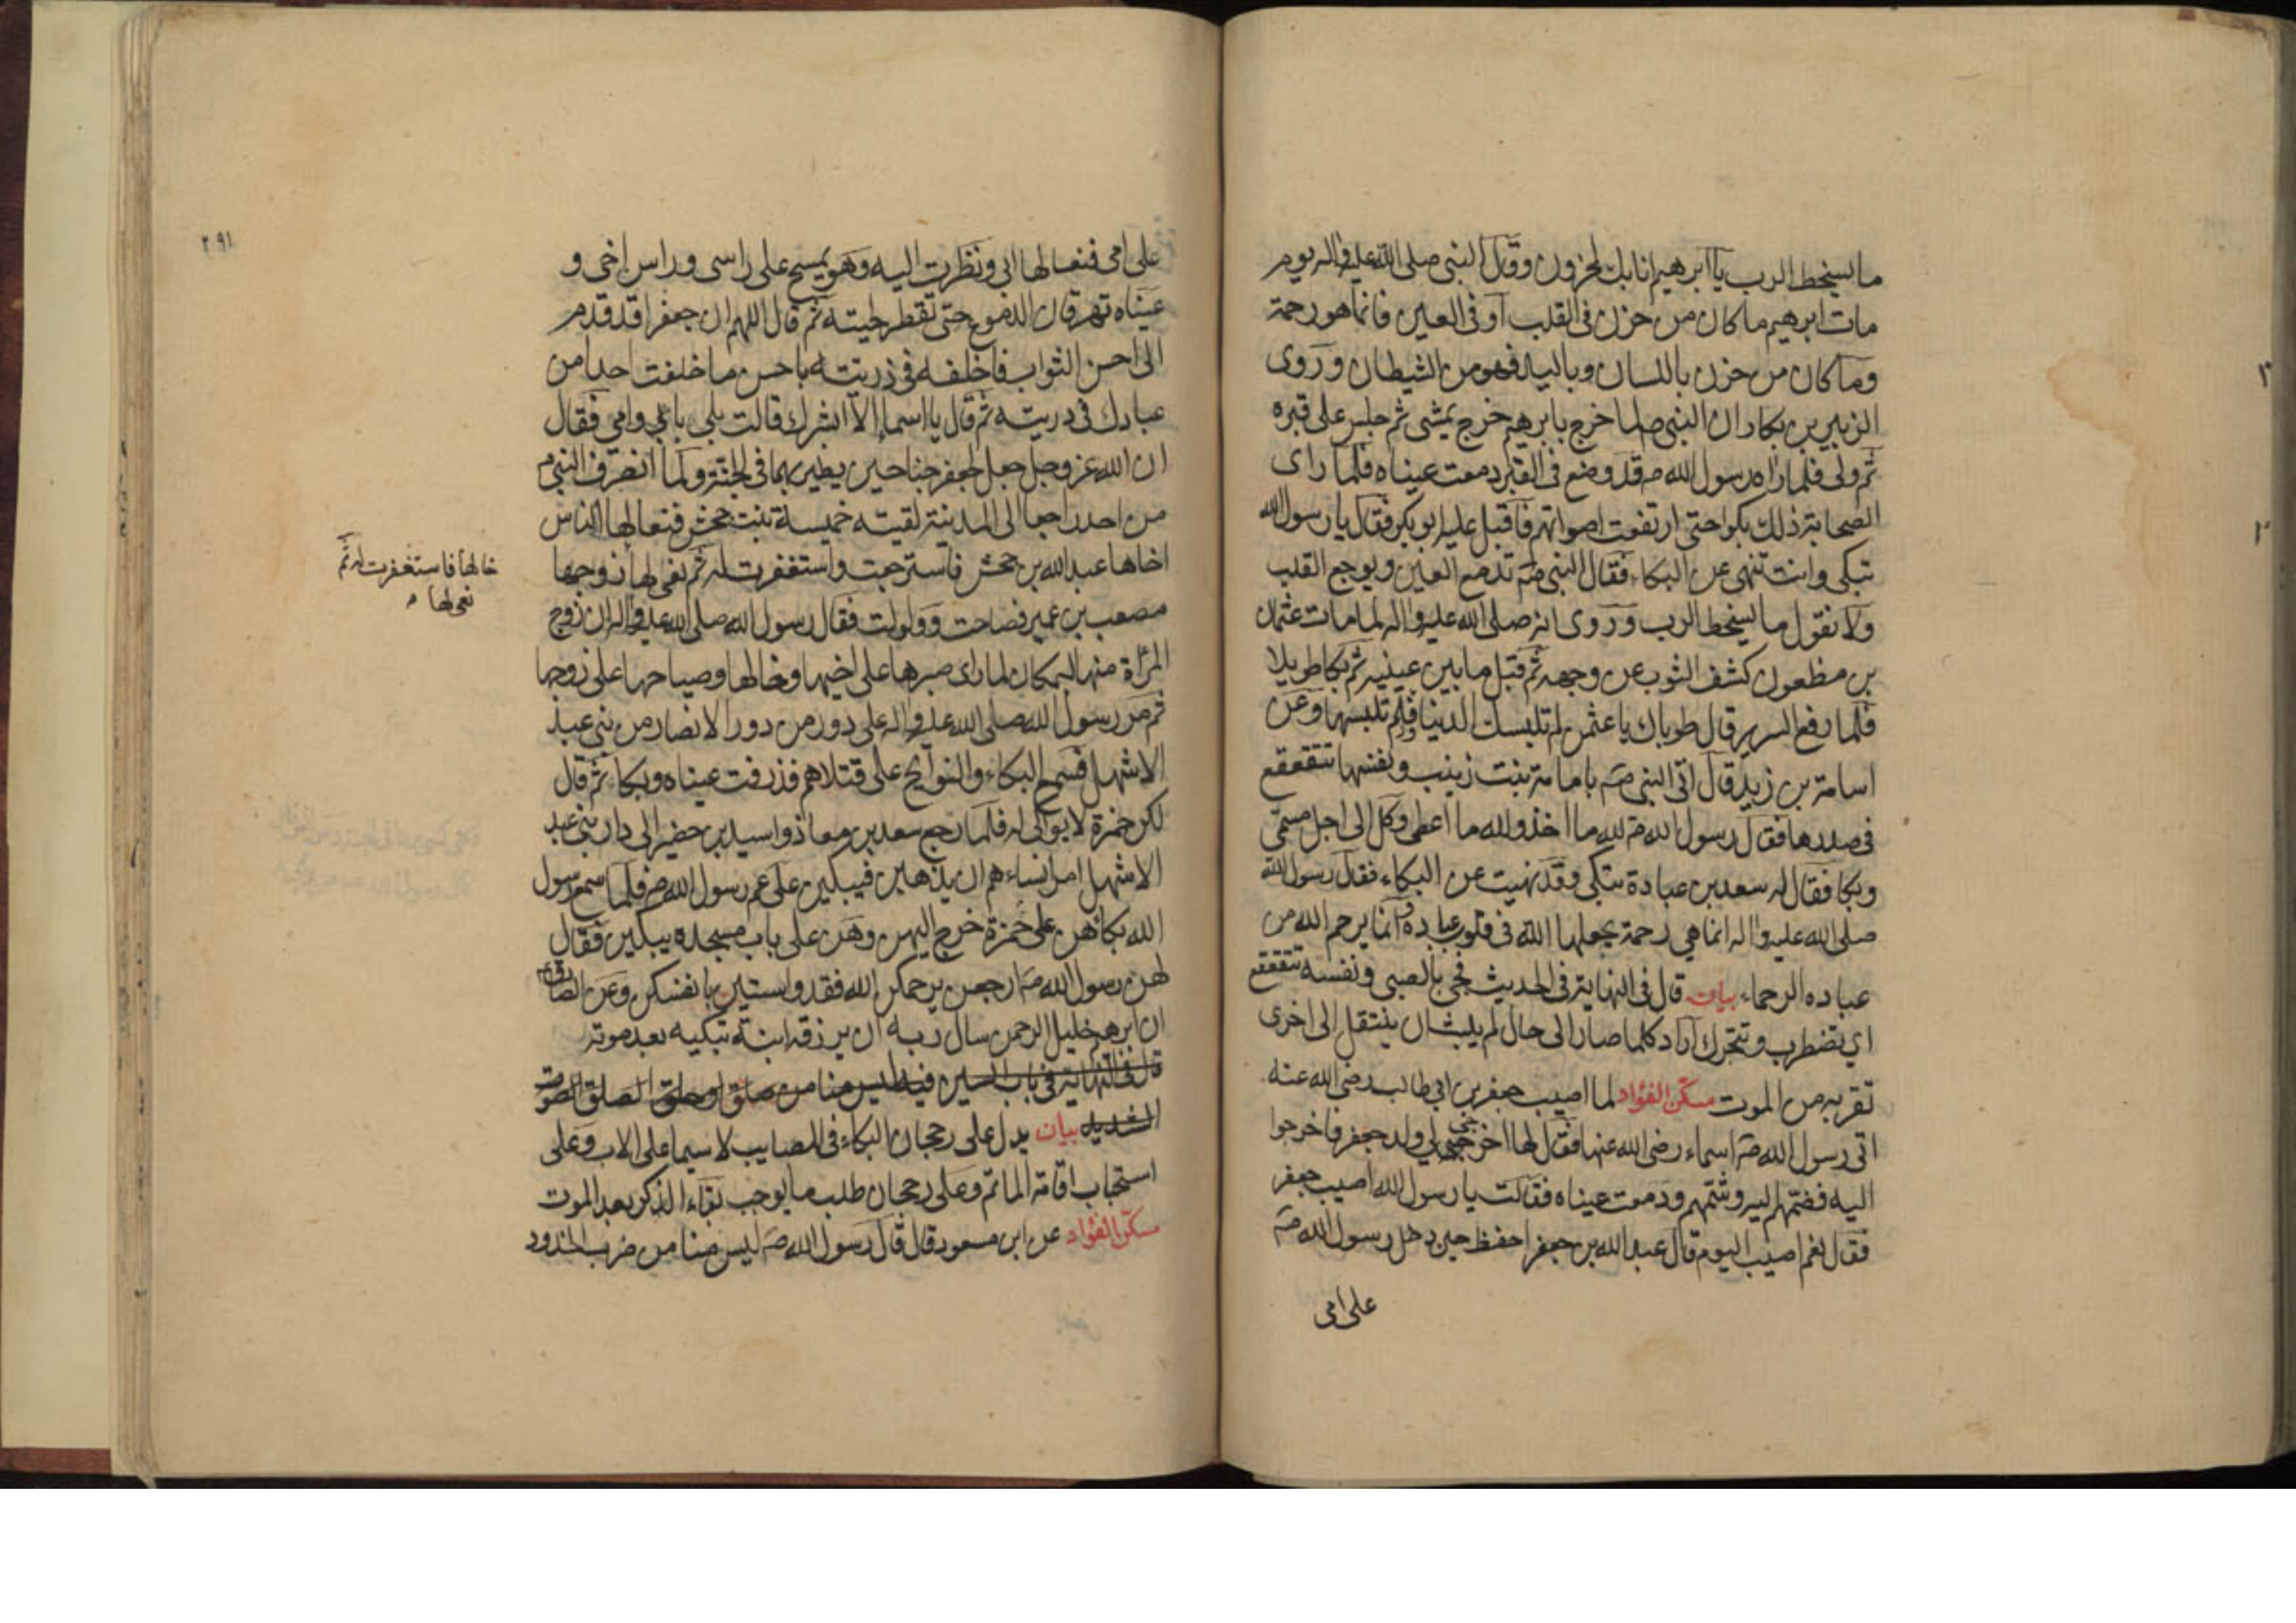 ما يسخط الرب يا ابرهيم انا بك لمحزونون وقال النبى صلى الله عليه واله يوم
مات ابرهيم ما كان من حزن فى القلب او فى العين فانما هو رحمة
وما كان من حزن باللسان وباليد فهو من الشيطان وروى
الزبير بن بكار ان النبى ص لما خرج بابرهيم خرج يمشى ثم جلس على قبره
ثم ولى فلما راه رسول الله ص قد وضع فى القبر دمعت عيناه فلما راى
الصحابة ذلك بكوا حتى ارتفعت اصواتهم فاقبل عليه ابو بكر فقال يا رسول الله
تبكى وانت تنهى عن البكاء فقال النبى ص تدمع العين ويوجع القلب
ولا نقول ما يسخط الرب وروى انه صلى الله عليه واله لما مات عثمان
بن مظعون كشف الثوب عن وجهه ثم قبل ما بين عينيه ثم بكا طويلا
فلما رفع السرير قال طوباك يا عثمن لم تلبسك الدنيا ولم تلبسها وعن
اسامة بن زيد قال اتى النبى ص بامامة بنت زينب ونفسها تتقعقع
فى صدرها فقال رسول الله ص لله ما اخذ ولله ما اعطى وكل الى اجل مسمى
وبكا فقال له سعد بن عبادة تبكى وقد نهيت عن البكاء فقال رسول الله
صلى الله عليه واله انما هى رحمة يجعلها الله فى قلوب عباده وانما يرحم الله من
عباده الرحماء بيان قال فى النهاية فى الحديث فجئ بالصبى ونفسه تتقعقع
اي تضطرب وتتحرك اراد كلما صار الى حال لم يلبث ان ينتقل الى اخرى
تقربه من الموت مسكن الفؤاد لما اصيب جعفر بن ابي طالب رضى الله عنه
اتى رسول الله ص اسماء رضى الله عنها فقال لها اخرجى لي ولد جعفر فاخرجوا
اليه فضمهم اليه وشمهم ودمعت عيناه فقالت يا رسول الله اصيب جعفر
فقال نعم اصيب اليوم قال عبد الله بن جعفر احفظ حين دخل رسول الله ص
على امى
٢٩١
على امى فنعا لها ابى ونظرت اليه وهو يمسح على راسى وراس اخى و
عيناه تهرقان الدموع حتى تقطر لحيته ثم قال اللهم ان جعفرا قد قدم
الى احسن الثواب فاخلفه فى ذريته باحسن ما خلفت احدا من
عبادك فى ذريته ثم قال يا اسماء الا ابشرك قالت بلى بابي وامى فقال
ان الله عز وجل جعل لجعفر جناحين يطير بهما فى الجنة ولما انصرف النبى ص
من احد راجعا الى المدينة لقيته خميسة بنت جحش فنعا لها الناس
اخاها عبد الله بن جحش فاسترجعت واستغفرت له ثم نعى لها زوجها
خالها فاستغفرت له ثم
نعى لها م
مصعب بن عمير فصاحت وولولت فقال رسول الله صلى الله عليه واله ان زوج
المرأة منها لبمكان لما راى صبرها على اخيها وخالها وصياحها على زوجها
ثم مر رسول الله صلى الله عليه واله على دور من دور الانصار من بنى عبد
الاشهل فسمع البكاء والنوايح على قتلاهم فذرفت عيناه وبكا ثم قال
لكن حمزة لا بواكى له فلما رجع سعد بن معاذ واسيد بن حضير الى دار بنى عبد
الاشهل امر انساءهم ان يذهبن فيبكين على عم رسول الله ص فلما سمع رسول
الله بكائهن على حمزة خرج اليهن وهن على باب مسجده يبكين فقال
لهن رسول الله ص ارجعن يرحمكن الله فقد واسيتن بانفسكن وعن الصادق ع
ان ابرهيم خليل الرحمن سال ربه ان يرزقه ابنة تبكيه بعد موته
قال فى النهاية فى باب السين فيه ليس منا من صلق او حلق الصلق الصوت
الشديد بيان يدل على رجحان البكاء فى المصايب لا سيما على الاب وعلى
استحباب اقامة الماتم وعلى رجحان طلب ما يوجب بقاء الذكر بعد الموت
مسكن الفؤاد عن ابن مسعود قال قال رسول الله ص ليس منا من ضرب الخدود